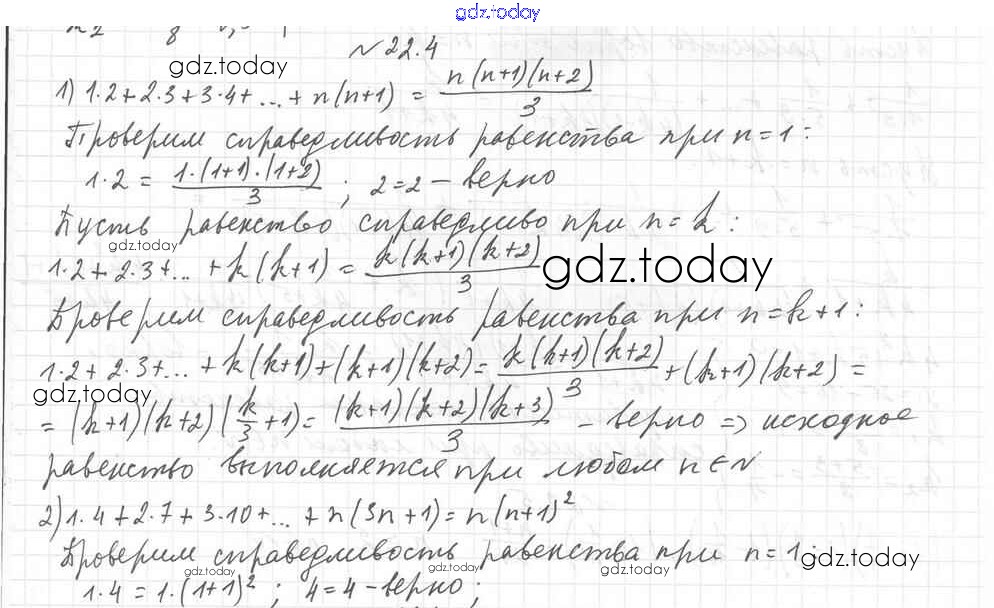 gdz.today
№ 22.4
gdz.today
1) 1·2+2·3+3·4+...+n(n+1) = n(n+1)(n+2)/3
Проверим справедливость равенства при n=1:
1·2 = 1·(1+1)·(1+2)/3 ; 2=2 – верно
Пусть равенство справедливо при n=k:
gdz.today
1·2+2·3+...+k(k+1) = k(k+1)(k+2)/3
gdz.today
Проверим справедливость равенства при n=k+1:
1·2+2·3+...+k(k+1)+(k+1)(k+2) = k(k+1)(k+2)/3 +(k+1)(k+2) =
gdz.today
= (k+1)(k+2)(k/3+1) = (k+1)(k+2)(k+3)/3 – верно => исходное
равенство выполняется при любом n∈N
2) 1·4+2·7+3·10+...+n(3n+1) = n(n+1)²
Проверим справедливость равенства при n=1:
gdz.today
gdz.today
gdz.today
1·4 = 1·(1+1)² ; 4=4 – верно;